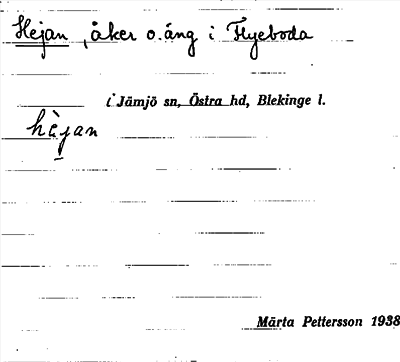 Hejan, åker o. äng i Flyeboda
i Jämjö sn, Östra hd, Blekinge l.
hèjan
Märta Pettersson 1938